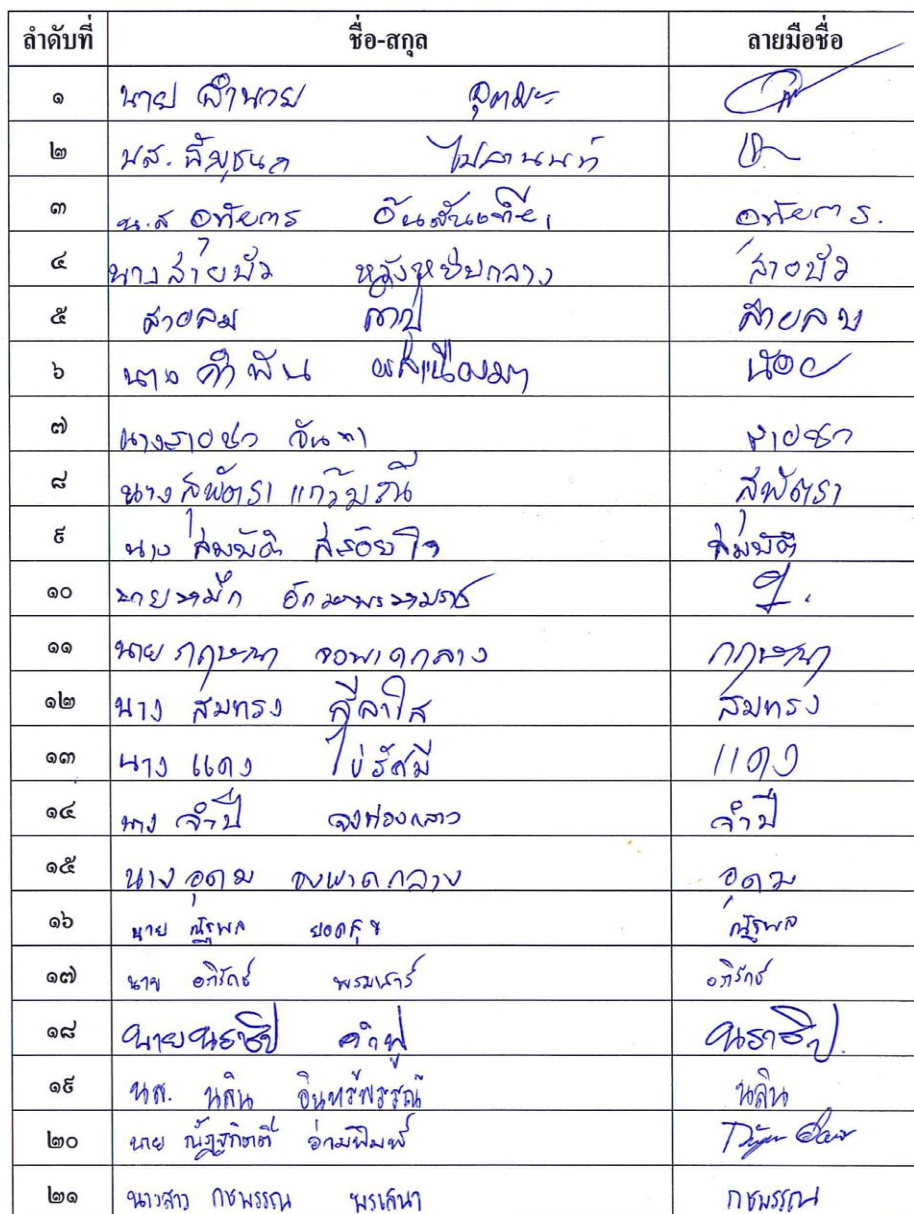 ลำดับที่ ชื่อ-สกุล ลายมือชื่อ
๑ นาย อำนวย อุตมะ
๒ นส. พิมุชนก ไปลานนท์
๓ น.ส อทัยกร
๔ นางสายบัว หวังหยิบกลาง สายบัว
๕ สายลม สายลม
๖ นาง คำพัน น้อย
๗ นางสายชล จันทา สายชล
๘ นางสุพัตรา แก้วมณี สุพัตรา
๙ นาง สมบัติ สร้อยใจ สมบัติ
๑๐ นาย
๑๑ นาย กฤษณา จอพาดกลาง กฤษณา
๑๒ นาง สมทรง สีลาใส สมทรง
๑๓ นาง แดง ไข่รัศมี แดง
๑๔ นาง จำปี จงพ่องกลาง จำปี
๑๕ นาง อุดม จงพาดกลาง อุดม
๑๖ นาย ณัฐพล ยอดสุข ณัฐพล
๑๗ นาย อภิรักษ์ พรมเสาร์ อภิรักษ์
๑๘ นายนราธิป คำฟู นราธิป.
๑๙ นส. นลิน อินทร์พรรณ์ นลิน
๒๐ นาย ณัฎฐกิตติ์ อ่ามพิมพ์
๒๑ นางสาว กชพรรณ พรเสนา กชพรรณ